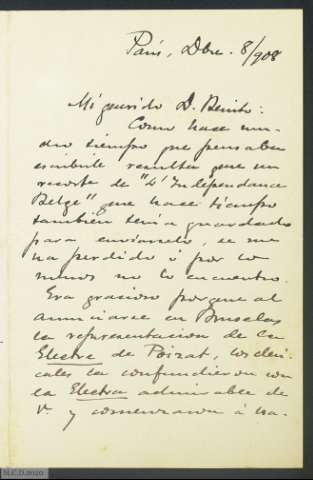 Paris, Dbre. 8/908
Mi querido D. Benito:
Como hace mu-
cho tiempo que pensaba
escribirle resulta que un
recorte de "L'Indépendance
Belge" que hace tiempo
también tenía guardado
para enviárselo, se me
ha perdido ó por lo
menos no lo encuentro.
Era gracioso porque al
anunciarse en Bruselas
la representacion de la
Electre de Poizat, los cleri-
cales la confundieron con
la Electra admirable de
V. y comenzaron á ha-
M.C.D.2020